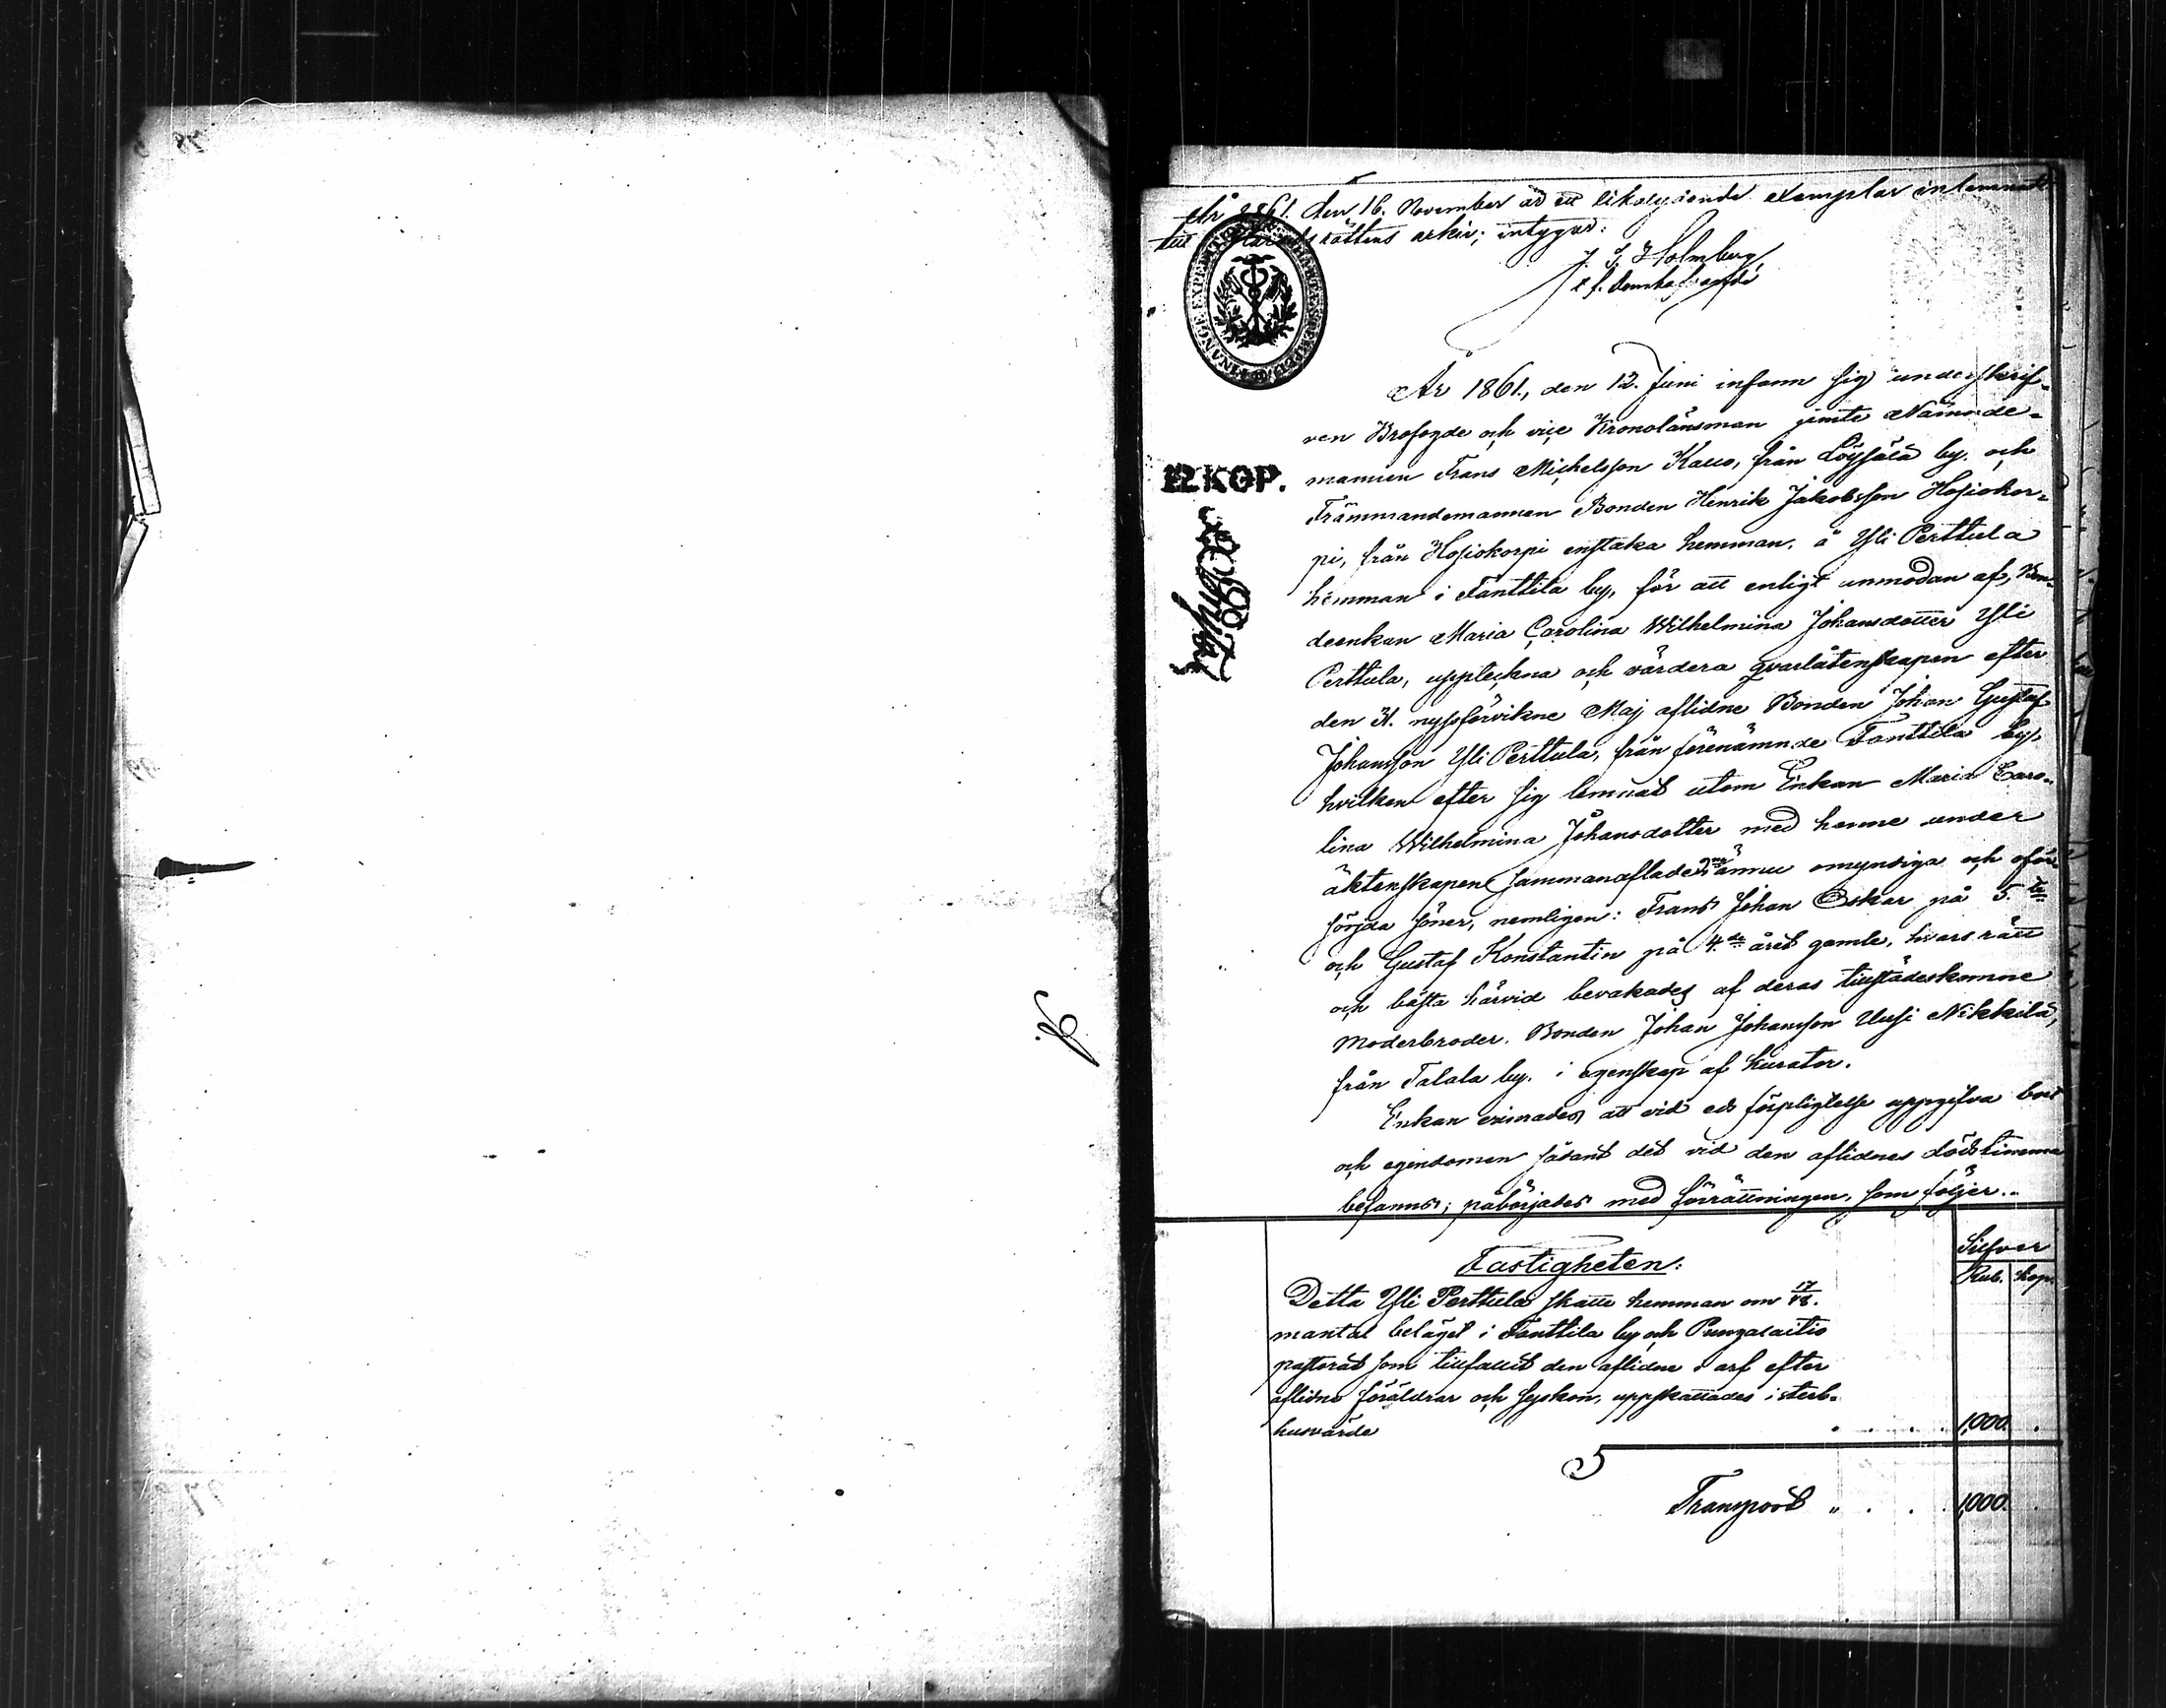 År 1861. den 16. November är ett likalydande exemplar inlemnadt
till Häradsrättens arkiv; intygar:
J. G. Holmberg
e. f. domhafvande
FINANCE EXPEDITIONEN
12 KOP.
År 1861., den 12. Juni infann sig underskrif-
ven Brofogde och vice Kronolänsman jemte Nämnde-
mannen Frans Michelsson Kauo, från Löysälä by, och
Främmandemannen Bonden Henrik Jakobsson Hosiokor-
pi, från Hosiokorpi enstaka hemman, å Yli Perttula
hemman i Tanttila by, för att enligt anmodan af, Bon-
deenkan Maria Carolina Wilhelmina Johansdotter Yli
Perttula, uppteckna och värdera qvarlåtenskapen efter
den 31. nyssförvikne Maj aflidne Bonden Johan Gustaf
Johansson Yli Perttula, från förenämnde Tanttila by,
hvilken efter sig lemnat utom Enkan Maria Caro-
lina Wilhelmina Johansdotter med henne under
äktenskapen sammanaflade 2ne ännu omyndiga och oför-
sörjda söner, nemligen: Frans Johan Oskar på 5.te
och Gustaf Konstantin på 4.de året gamle, hvars rätt
och bästa härvid bevakades af deras tillstädeskomne
Moderbroder, Bonden Johan Johansson Uusi Nikkilä,
från Talala by, i egenskap af kurator.
Enkan erinrades, att vid eds förpligtelse uppgifva boet
och egendomen sådant det vid den aflidnes dödstimma
befanns; påbörjades med förrättningen, som följer.
Silfver
Rub. Kop.
Fastigheten:
Detta Yli Perttula skatte hemman om 17/48.
mantal beläget i Tanttila by och Pungalaitio
pastorat som tillfallit den aflidne i arf efter
aflidne föräldrar och syskon, uppskattades i sterb-
husvärde . . . . 1,000. .
Transport " . . . 1,000. .